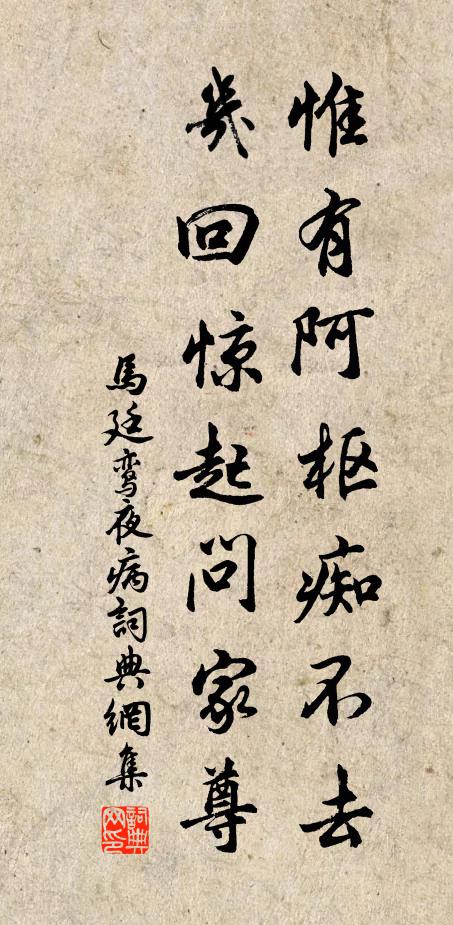 惟有阿枢痴不去
几回惊起问家尊
馬廷鸾夜病詞典網集
詞典网印